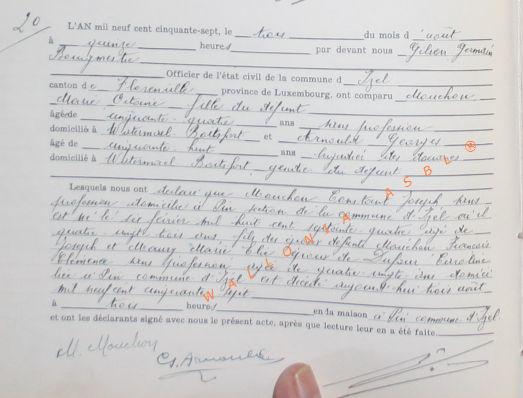 20
L'AN mil neuf cent cinquante-sept, le trois du mois d'août
à quinze heures par devant nous Gilson Germain
Bourgmestre
Officier de l'état civil de la commune d'Izel
canton de Florenville province de Luxembourg, ont comparu Mouchon
Marie fille du défunt
âgée de cinquante-quatre ans sans profession
domicilié à Watermael Boitsfort et Arnould Georges
âgé de cinquante huit ans brigadier des douanes
domicilié à Watermael Boitsfort, gendre du défunt
Lesquels nous ont déclaré que Mouchon Constant Joseph sans
profession domicilié à Pin section de la commune d'Izel où il
est né le février mil huit cent septante quatre âgé de
quatre-vingt trois ans, fils des défunts Mouchon François
Joseph et Marie époux de Caroline
Clémence sans profession âgée de quatre vingts ans domici
liée à Pin commune d'Izel est décédé aujourd'hui trois août
mil neuf cent cinquante sept
à trois heures en la maison à Pin commune d'Izel
et ont les déclarants signé avec nous le présent acte, après que lecture leur en a été faite.
M. Mouchon
G. Arnould
WALLONVA ASBL ®